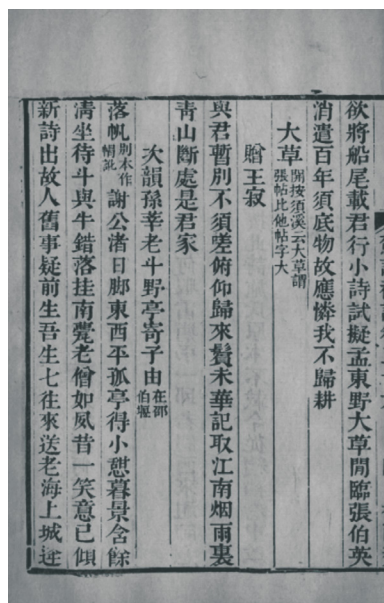 欲將船尾載君行小詩試擬孟東野大草閒臨張伯英
消遣百年須底物故應憐我不歸耕
大草
按須溪云大草謂
張帖比他帖字大
贈王寂
與君暫別不須嗟俯仰歸來鬢未華記取江南烟雨裏
青山斷處是君家
次韻孫莘老斗野亭寄子由
在邵
伯堰
落帆
別本作
訛
謝公渚日脚東西平孤亭得小憩暮景含餘
清坐待斗與牛錯落挂南甍老僧如夙昔一笑意已傾
新詩出故人舊事疑前生吾生七往來送老海上城逆